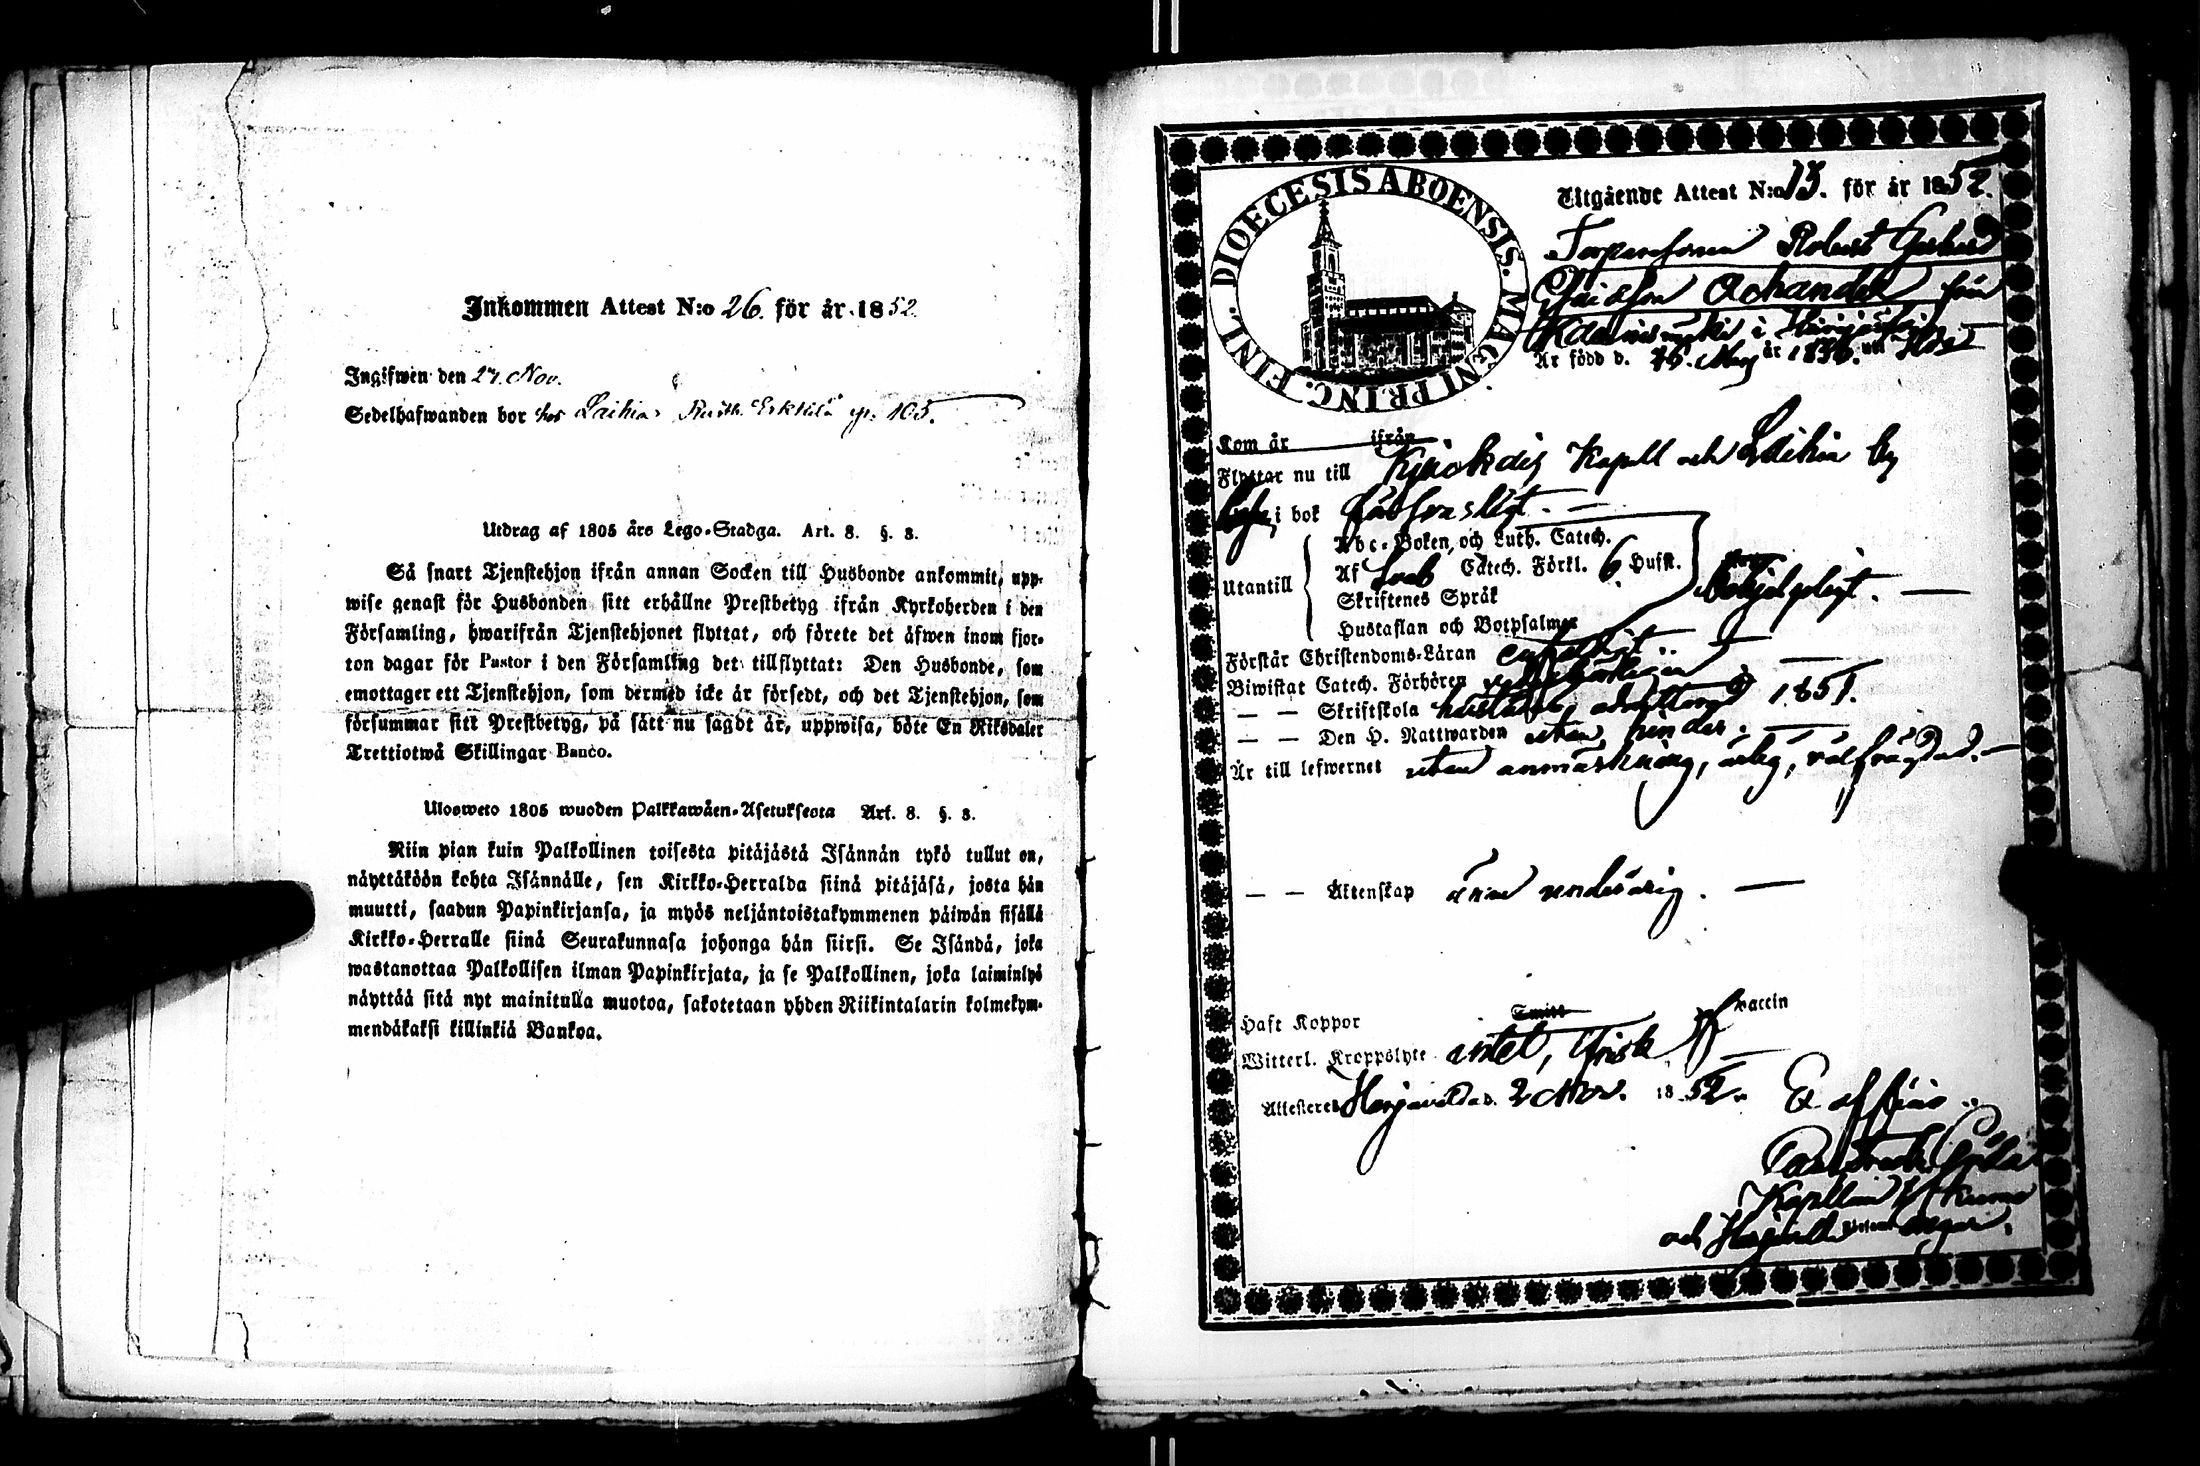 Inkommen Attest N:o 26. för år 1852.
Ingifwen den 27. Nov.
Sedelhafwanden bor hos Laihia Rusth. Erkkilä p. 105.
Utdrag af 1805 års Lego-Stadga. Art. 8. §. 3.
Så snart Tjenstehjon ifrån annan Socken till Husbonde ankommit, upp-
wise genast för Husbonden sitt erhållne Prestbetyg ifrån Kyrkoherden i den
Församling, hwarifrån Tjenstehjonet flyttat, och förete det äfwen inom fjor-
ton dagar för Pastor i den Församling det tillflyttat: Den Husbonde, som
emottager ett Tjenstehjon, som dermed icke är försedt, och det Tjenstehjon, som
försummar sitt Prestbetyg, på sätt nu sagdt är, uppwisa, böte En Riksdaler
Trettiotwå Skillingar Banco.
Ulosweto 1805 wuoden Palkkawäen-Asetuksesta Art. 8. §. 3.
Niin pian kuin Palkollinen toisesta pitäjästä Isännän tykö tullut on,
näyttäköön kohta Isännälle, sen Kirkko-Herralda siinä pitäjäsä, josta hän
muutti, saadun Papinkirjansa, ja myös neljäntoistakymmenen päiwän sisällä
Kirkko-Herralle siinä Seurakunnasa johonga hän siirsi. Se Isändä, joka
wastanottaa Palkollisen ilman Papinkirjata, ja se Palkollinen, joka laiminlyö
näyttää sitä nyt mainitulla muotoa, sakotetaan yhden Riikintalarin kolmekym-
mendäkaksi killinkiä Bankoa.
DIOECESIS ABOENSIS. MAGNI PRINC. FINL.
Utgående Attest N:o 13. för år 1852.
Torparesonen Robert Gerhard
Achander från
i
Är född d. 26. år 1836.
Kom år ifrån
Flyttar nu till Kjuokais Kapell och Laihia by
Läser i bok försvarligt.
Abc-Boken, och Luth. Catech.
Utantill Af Sveb Catech. Förkl. 6 Hufst.
Skriftenes Språk
Hustaflan och Botpsalmer
Förstår Christendoms-Läran enfaldigt
Biwistat Catech. Förhören
— — Skriftskola admitterad 1851.
— — Den H. Nattwarden utan hinder.
Är till lefwernet utan anmärkning, ärlig, välfrägdad.
— — Äktenskap ännu underårig.
Haft Koppor Smitt vaccin
Witterl. Kroppslyte intet, frisk
Attesteres Harjavalda d. 2 Nov. 1852.
Ex officio
Kapellan i Kumo
och